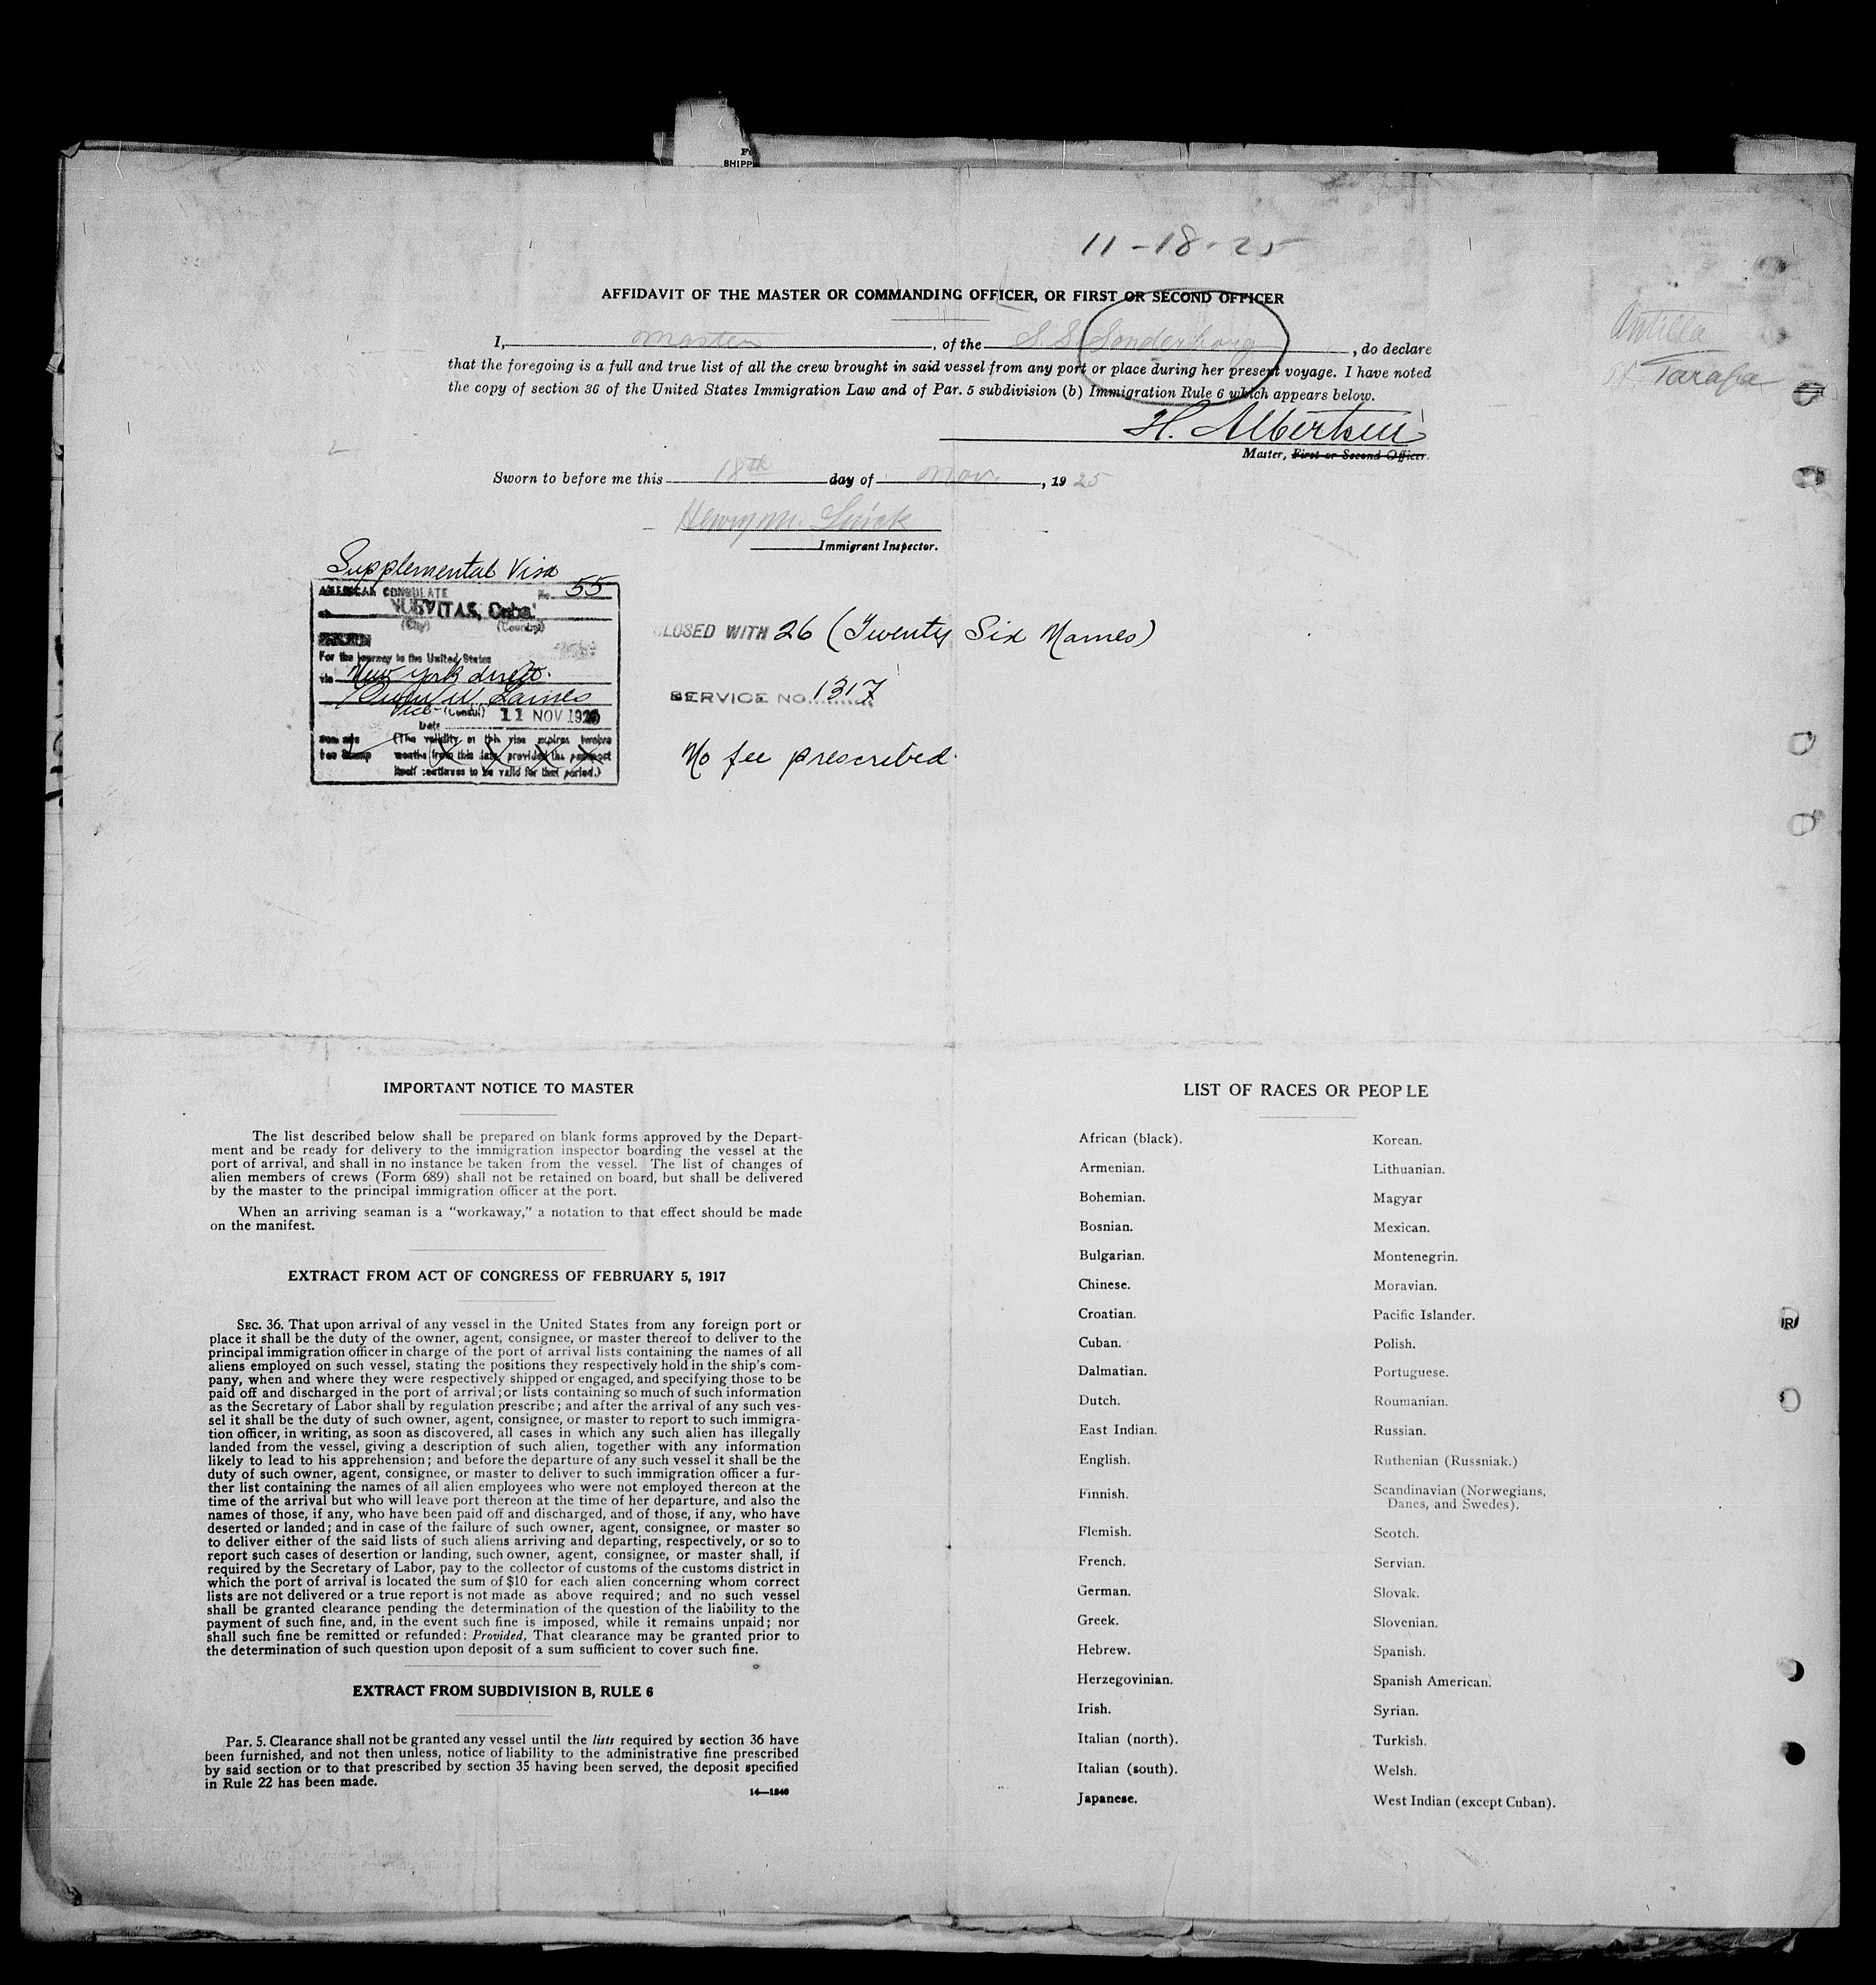 SHIPP
11-18-25
AFFIDAVIT OF THE MASTER OR COMMANDING OFFICER, OR FIRST OR SECOND OFFICER
I, Master, of the S.S. Sonderborg, do declare
that the foregoing is a full and true list of all the crew brought in said vessel from any port or place during her present voyage. I have noted
the copy of section 36 of the United States Immigration Law and of Par. 5 subdivision (b) Immigration Rule 6 which appears below.
Antilla
Tarafa
H. Albertsen
Master, First or Second Officer.
Sworn to before me this 18th day of Nov., 1925
Henry M.
Immigrant Inspector.
Supplemental Visa
AMERICAN CONSULATE No. 55
at NUEVITAS, Cuba
(City) (Country)
For the journey to the United States
via New York direct.
Vice (Consul) 11 NOV 1925
Date
(The validity of this visa expires twelve
fee stamp months from this date provided the passport
itself continues to be valid for that period.)
CLOSED WITH 26 (Twenty Six Names)
SERVICE NO. 1317
No fee prescribed.
IMPORTANT NOTICE TO MASTER
The list described below shall be prepared on blank forms approved by the Depart-
ment and be ready for delivery to the immigration inspector boarding the vessel at the
port of arrival, and shall in no instance be taken from the vessel. The list of changes of
alien members of crews (Form 689) shall not be retained on board, but shall be delivered
by the master to the principal immigration officer at the port.
When an arriving seaman is a "workaway," a notation to that effect should be made
on the manifest.
EXTRACT FROM ACT OF CONGRESS OF FEBRUARY 5, 1917
SEC. 36. That upon arrival of any vessel in the United States from any foreign port or
place it shall be the duty of the owner, agent, consignee, or master thereof to deliver to the
principal immigration officer in charge of the port of arrival lists containing the names of all
aliens employed on such vessel, stating the positions they respectively hold in the ship's com-
pany, when and where they were respectively shipped or engaged, and specifying those to be
paid off and discharged in the port of arrival; or lists containing so much of such information
as the Secretary of Labor shall by regulation prescribe; and after the arrival of any such ves-
sel it shall be the duty of such owner, agent, consignee, or master to report to such immigra-
tion officer, in writing, as soon as discovered, all cases in which any such alien has illegally
landed from the vessel, giving a description of such alien, together with any information
likely to lead to his apprehension; and before the departure of any such vessel it shall be the
duty of such owner, agent, consignee, or master to deliver to such immigration officer a fur-
ther list containing the names of all alien employees who were not employed thereon at the
time of the arrival but who will leave port thereon at the time of her departure, and also the
names of those, if any, who have been paid off and discharged, and of those, if any, who have
deserted or landed; and in case of the failure of such owner, agent, consignee, or master so
to deliver either of the said lists of such aliens arriving and departing, respectively, or so to
report such cases of desertion or landing, such owner, agent, consignee, or master shall, if
required by the Secretary of Labor, pay to the collector of customs of the customs district in
which the port of arrival is located the sum of $10 for each alien concerning whom correct
lists are not delivered or a true report is not made as above required; and no such vessel
shall be granted clearance pending the determination of the question of the liability to the
payment of such fine, and, in the event such fine is imposed, while it remains unpaid; nor
shall such fine be remitted or refunded: Provided, That clearance may be granted prior to
the determination of such question upon deposit of a sum sufficient to cover such fine.
EXTRACT FROM SUBDIVISION B, RULE 6
Par. 5. Clearance shall not be granted any vessel until the lists required by section 36 have
been furnished, and not then unless, notice of liability to the administrative fine prescribed
by said section or to that prescribed by section 35 having been served, the deposit specified
in Rule 22 has been made.
14—1240
LIST OF RACES OR PEOPLE
African (black).
Armenian.
Bohemian.
Bosnian.
Bulgarian.
Chinese.
Croatian.
Cuban.
Dalmatian.
Dutch.
East Indian.
English.
Finnish.
Flemish.
French.
German.
Greek.
Hebrew.
Herzegovinian.
Irish.
Italian (north).
Italian (south).
Japanese.
Korean.
Lithuanian.
Magyar
Mexican.
Montenegrin.
Moravian.
Pacific Islander.
Polish.
Portuguese.
Roumanian.
Russian.
Ruthenian (Russniak.)
Scandinavian (Norwegians,
Danes, and Swedes).
Scotch.
Servian.
Slovak.
Slovenian.
Spanish.
Spanish American.
Syrian.
Turkish.
Welsh.
West Indian (except Cuban).